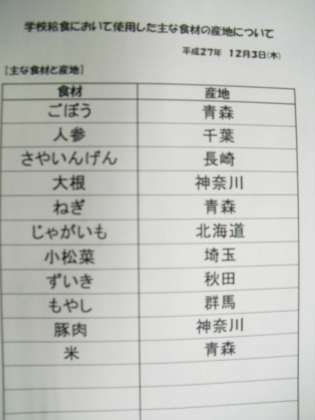 学校給食において使用した主な食材の産地について
平成27年 12月3日(木)
[主な食材と産地]
食材 産地
ごぼう 青森
人参 千葉
さやいんげん 長崎
大根 神奈川
ねぎ 青森
じゃがいも 北海道
小松菜 埼玉
ずいき 秋田
もやし 群馬
豚肉 神奈川
米 青森